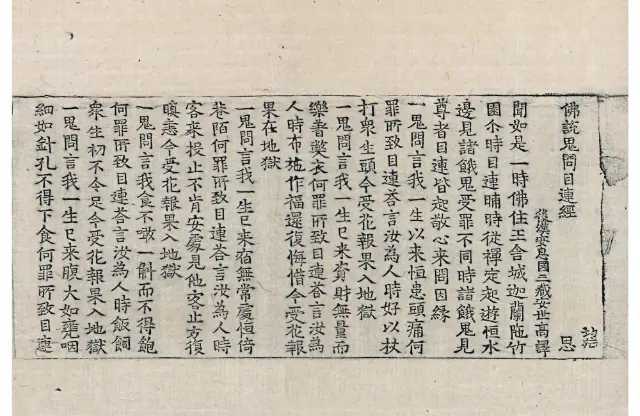 佛說鬼問目連經 思
後漢安息國三藏安世高譯
聞如是一時佛住王舍城迦蘭陁竹
園尒時目連晡時從禪定起遊恒水
邊見諸餓鬼受罪不同時諸餓鬼見
尊者目連皆起敬心來問因緣
一鬼問言我一生以來恒患頭痛何
罪所致目連荅言汝為人時好以杖
打衆生頭今受花報果入地獄
一鬼問言我一生已來資財無量而
樂著弊衣何罪所致目連荅言汝為
人時布施作福還復悔惜今受花報
果在地獄
一鬼問言我一生已來宿無常處恒倚
巷陌何罪所致目連荅言汝為人時
客來投止不肯安處見他客止方復
瞋恚今受花報果入地獄
一鬼問言我食不噉一斛而不得飽
何罪所致目連荅言汝為人時飯飼
衆生初不令足今受花報果入地獄
一鬼問言我一生已來腹大如甕咽
細如針孔不得下食何罪所致目連